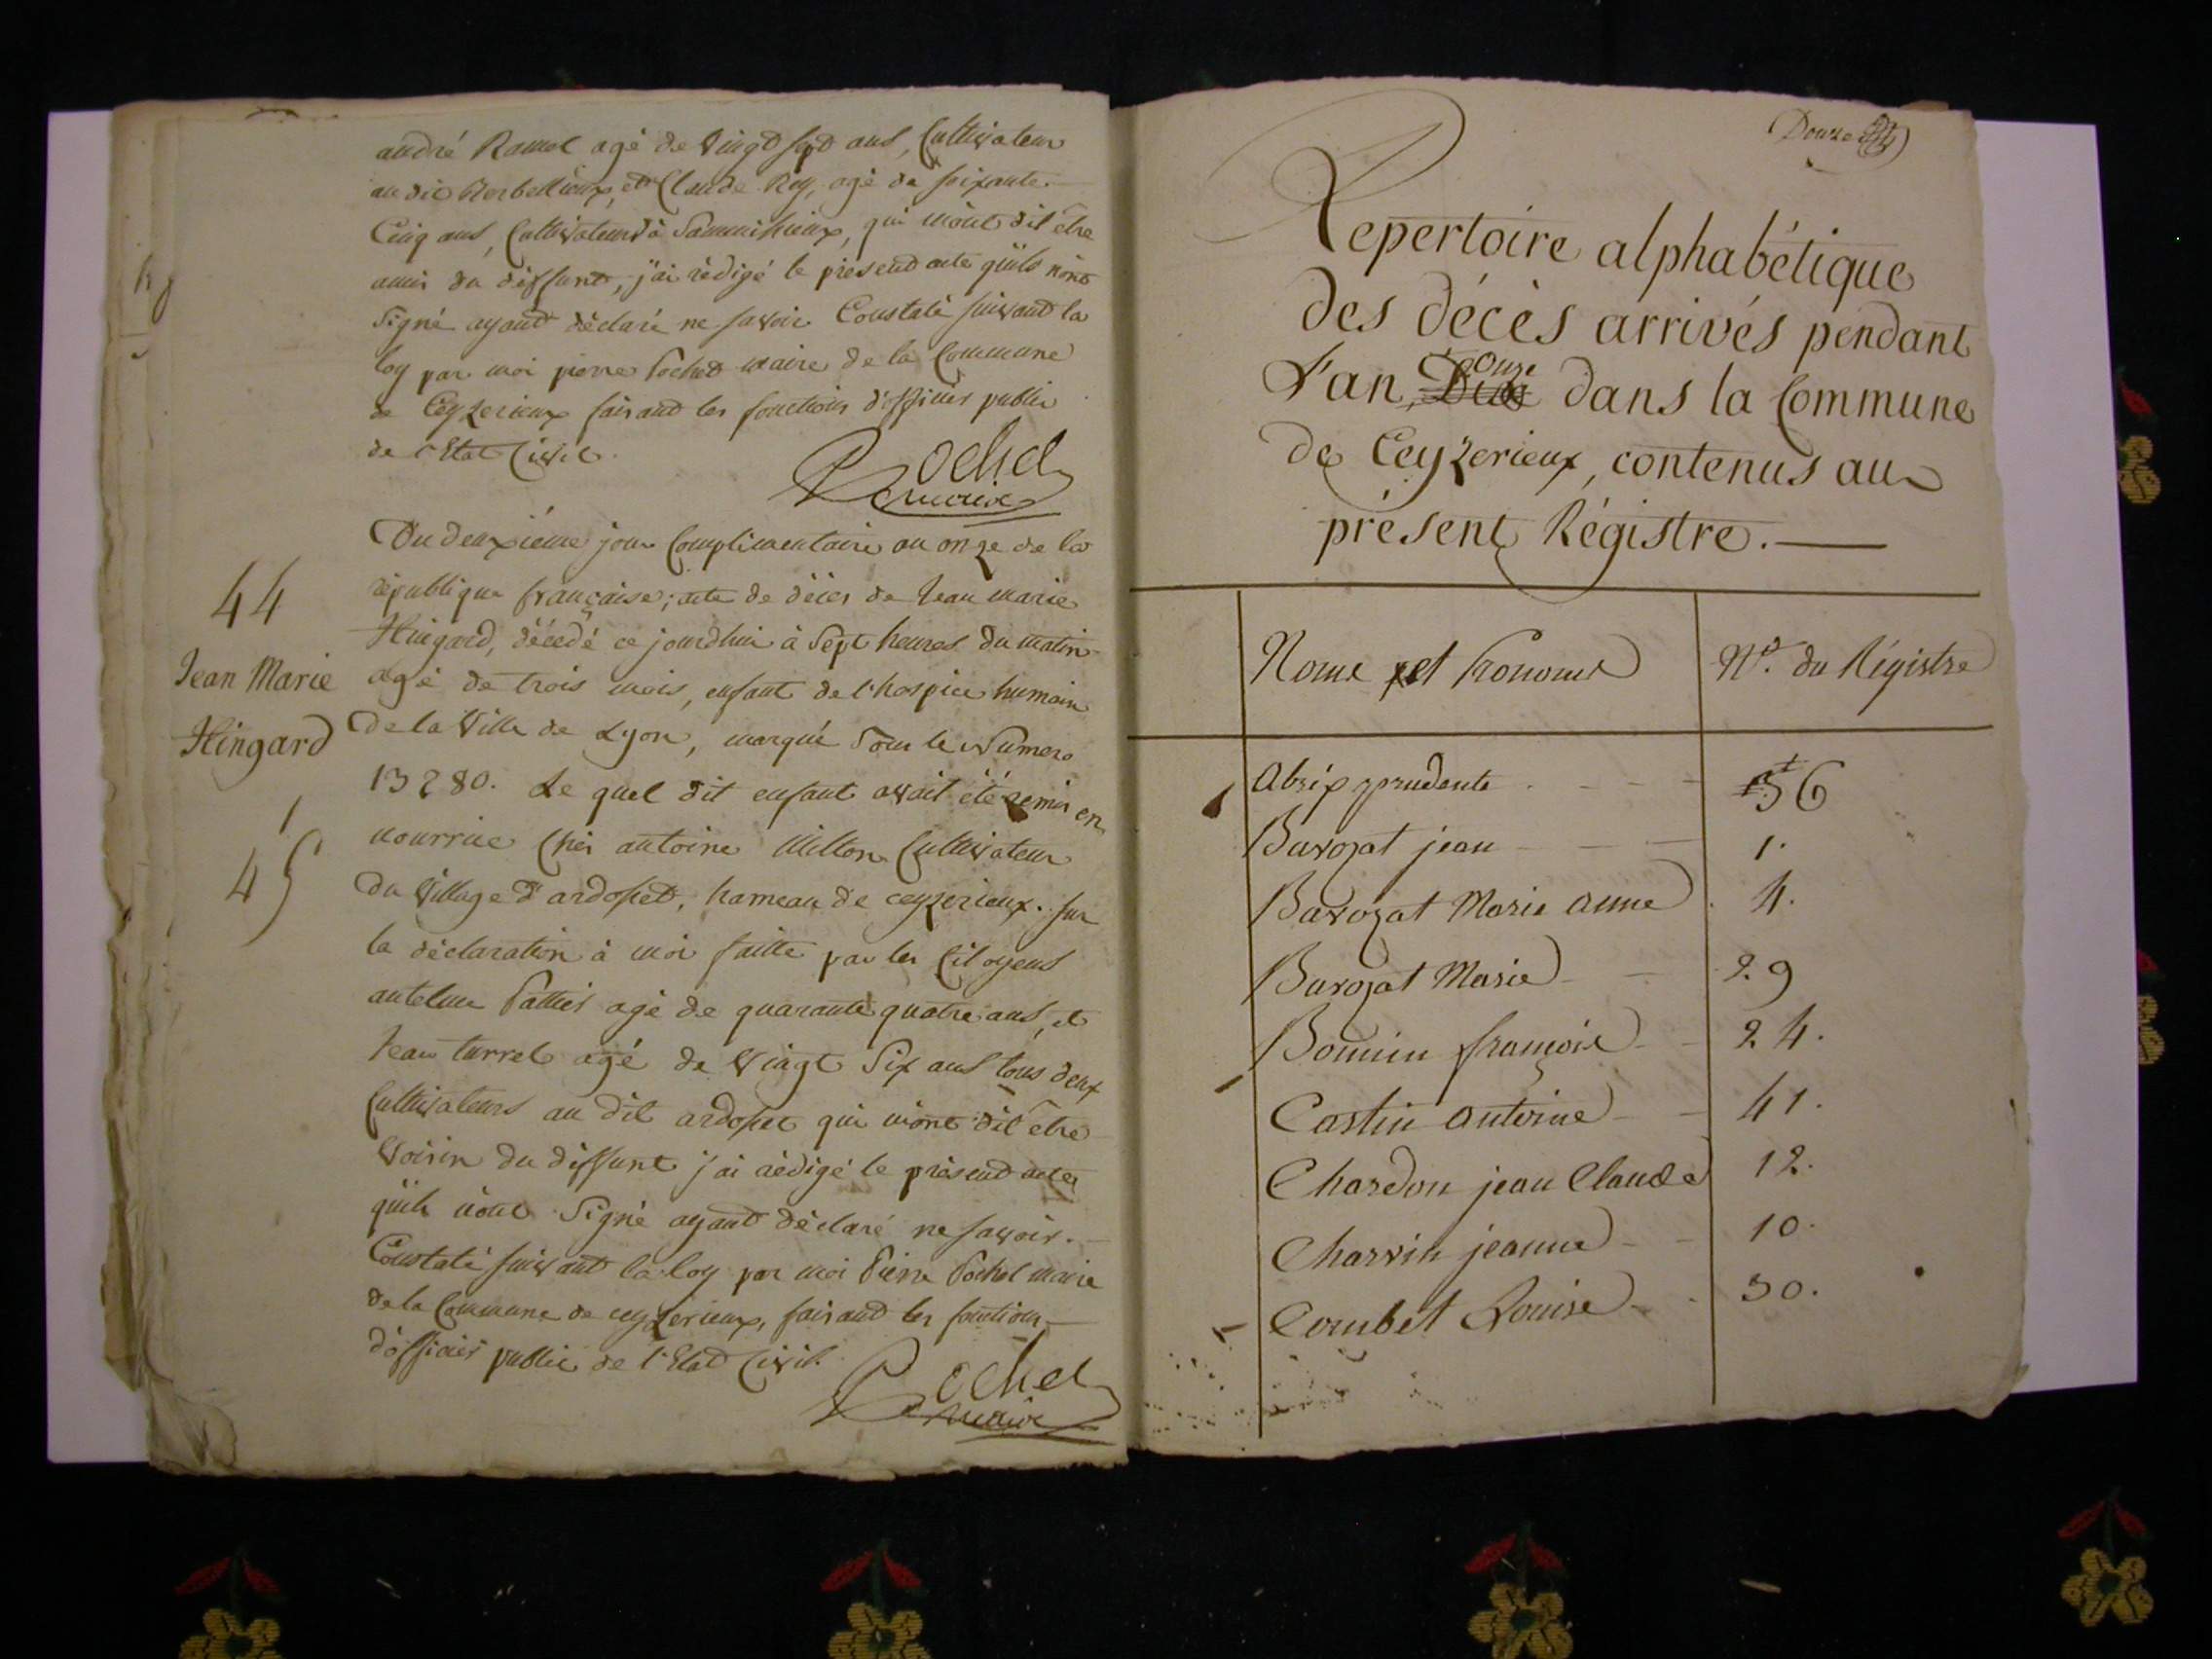 andré Ramel agé de vingt sept ans, Cultivateur
au dit et Claude Rey, agé de soixante
Cinq ans, Cultivateur à qui m'ont dit être
amis du deffunt, j'ai rédigé le present acte quils n'ont
Signé ayant déclaré ne savoir. Constaté suivant la
loy par moi pierre Pochet maire de la Commune
de Ceyzerieux faisant les fonctions d'officier public
de l'Etat Civil.
Pochet
maire
Du deuxiéme jour Complimentaire an onze de la
république française; acte de décès de Jean marie
Hingard, décedé ce jourdhui à Sept heures du matin
agé de trois mois, enfant de l'hospice humain
44
Jean Marie
Hingard
De la Ville de Lyon, marqué Sous le Numero
13280. Le quel dit enfant avait été remis en
nourrice Chés antoine Millon Cultivateur
45
Du Village d'ardosset, hameau de ceyzerieux. sur
la déclaration à moi faitte par les Citoyens
antelme Pattier agé de quarante quatre ans, et
Jean turrel agé de Vingt Six ans tous deux
Cultivateurs au dit ardosset qui m'ont dit être
Voisin du deffunt j'ai rédigé le présent acte
quils n'ont Signé ayant déclaré ne savoir.
Constaté suivant la loy par moi Pierre Pochet maire
de la Commune de ceyzerieux, faisant les fonctions
d'officier public de l'Etat Civil.
Pochet
maire
Douze
Repertoire alphabétique
des décès arrivés pendant
L'an onze dans la Commune
de Ceyzerieux, contenus au
présent Régistre.
Noms et Prenoms
N.º du Régistre
Abrix prudente 36
Bavozat jean 1.
Bavozat Marie anne 4.
Bavozat Marie 29
Bonnin françoise 24.
Castin Antoine 41.
Chardon jean Claude 12.
Charvin jeanne 10.
Combet Louise 30.